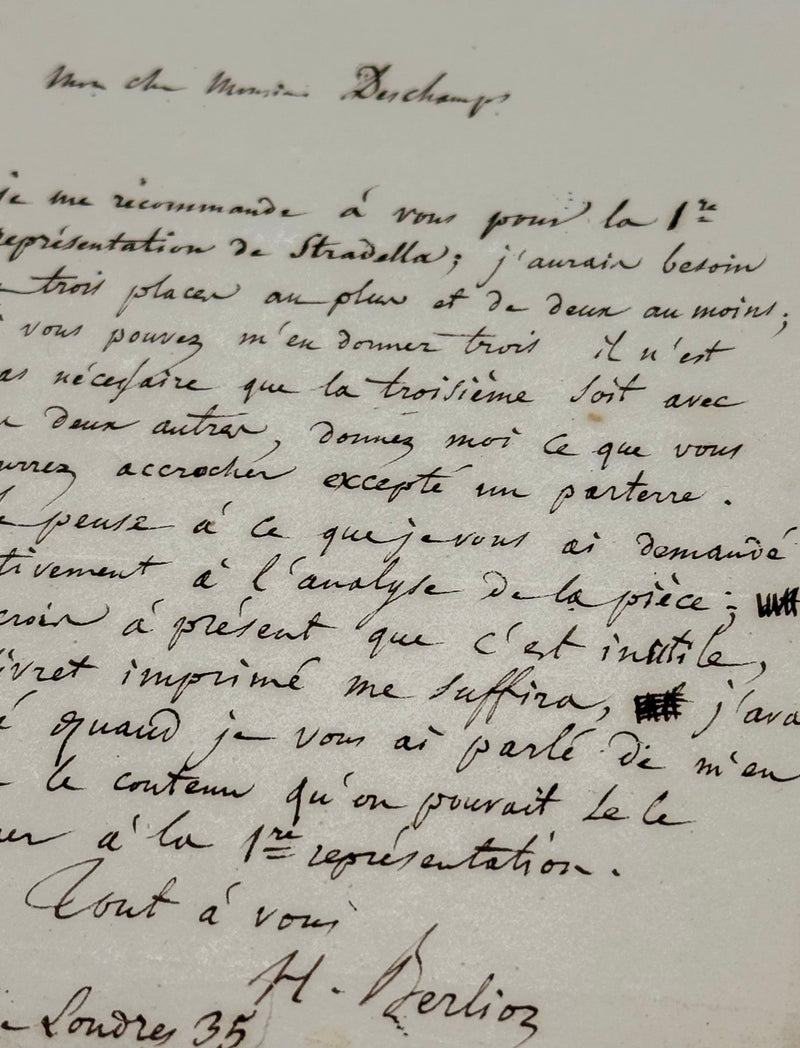 Mon cher Monsieur Deschamps
je me recommande à vous pour la 1re
représentation de Stradella; j'aurais besoin
trois places au plus et de deux au moins;
vous pouvez m'en donner trois il n'est
as nécessaire que la troisième soit avec
deux autres, donnez moi ce que vous
urrez accrocher excepté un parterre.
pense à ce que je vous ai demandé
tivement à l'analyse de la pièce;
crois à présent que c'est inutile,
ivret imprimé me suffira, j'ava
é quand je vous ai parlé de m'en
le contenu qu'on pouvait se le
er à la 1re représentation.
Tout à vous
H. Berlioz
Londres 35